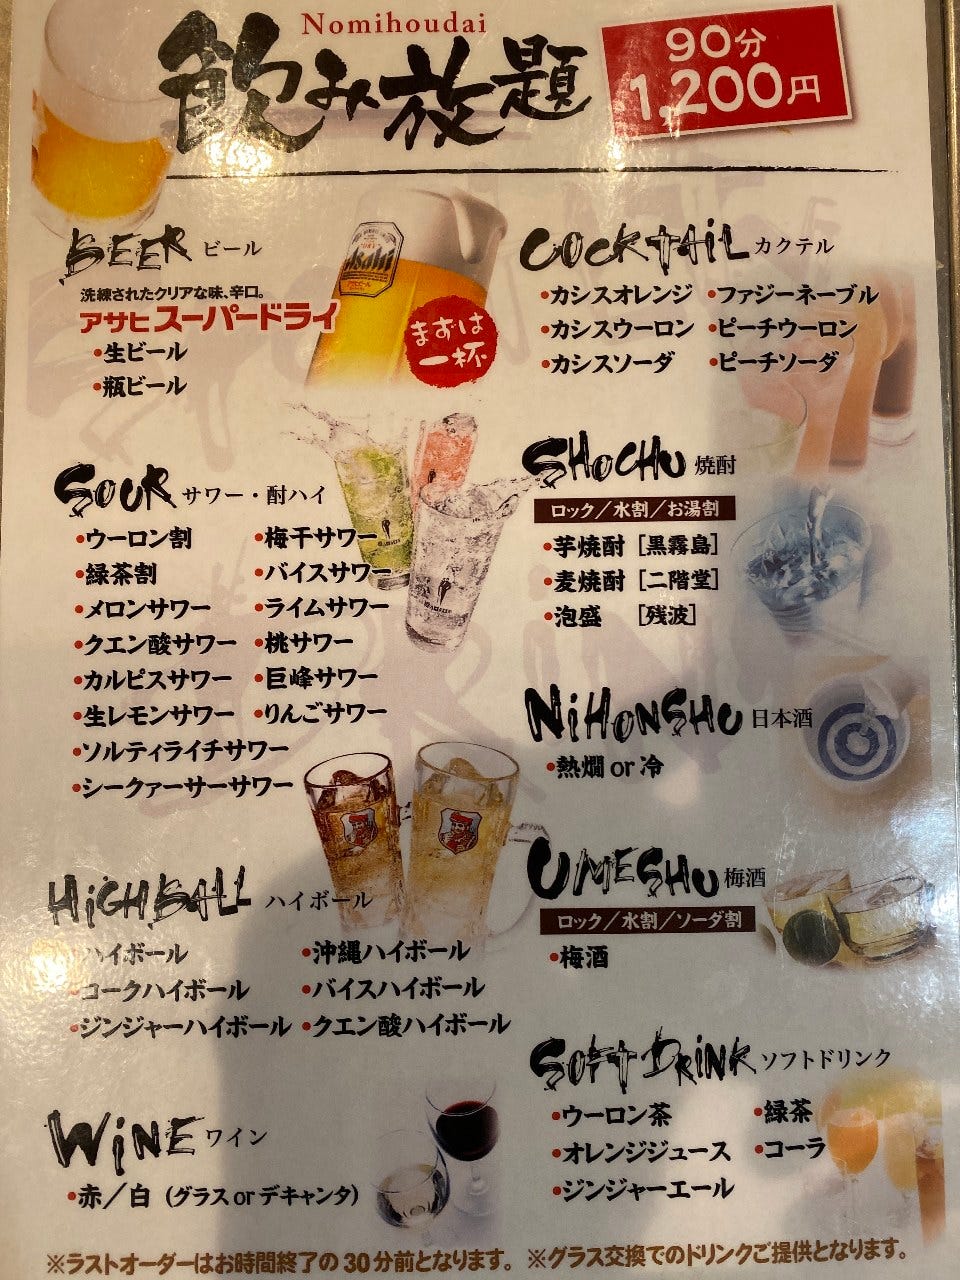 Nomihoudai
飲み放題
90分
1,200円
BEER ビール
洗練されたクリアな味、辛口。
アサヒスーパードライ
・生ビール
・瓶ビール
Asahi
まずは
一杯
SOUR サワー・酎ハイ
・ウーロン割
・緑茶割
・メロンサワー
・クエン酸サワー
・カルピスサワー
・生レモンサワー
・ソルティライチサワー
・シークァーサーサワー
・梅干サワー
・バイスサワー
・ライムサワー
・桃サワー
・巨峰サワー
・りんごサワー
HiGHBALL ハイボール
ハイボール
・コークハイボール
・ジンジャーハイボール
・沖縄ハイボール
・バイスハイボール
・クエン酸ハイボール
WiNE ワイン
・赤／白（グラス or デキャンタ）
COCKTAiL カクテル
・カシスオレンジ
・カシスウーロン
・カシスソーダ
・ファジーネーブル
・ピーチウーロン
・ピーチソーダ
SHOCHU 焼酎
ロック／水割／お湯割
・芋焼酎［黒霧島］
・麦焼酎［二階堂］
・泡盛［残波］
NiHONSHU 日本酒
・熱燗 or 冷
UMESHU 梅酒
ロック／水割／ソーダ割
・梅酒
SOFT DRiNK ソフトドリンク
・ウーロン茶
・オレンジジュース
・ジンジャーエール
・緑茶
・コーラ
※ラストオーダーはお時間終了の30分前となります。 ※グラス交換でのドリンクご提供となります。